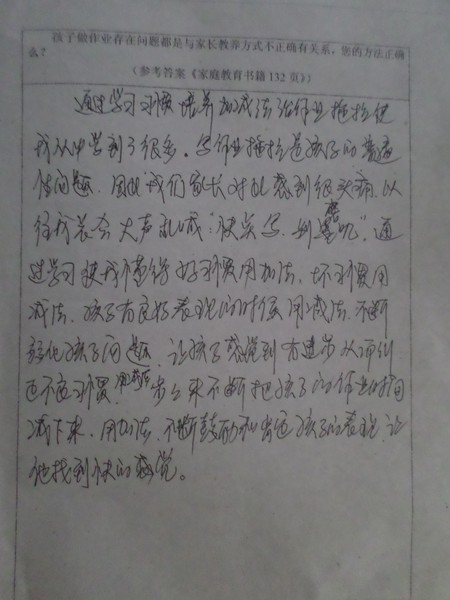 孩子做作业存在问题都是与家长教养方式不正确有关系，您的方法正确
么？
（参考答案《家庭教育书籍132页》）
通过学习习惯培养加减法治作业拖拉使
我从中学到了很多。写作业拖拉是孩子的普遍
性问题，因此我们家长对此感到很头痛，以
往我总会大声乱喊“快点写，别磨叽”。通
过学习使我懂得好习惯用加法，坏习惯用
减法，孩子有良好表现的时候用减法，不断
弱化孩子问题，让孩子感觉到有进步从而纠
正不良习惯，用减法不断把孩子的作业时间
减下来，用加法，不断鼓励和肯定孩子的表现，让
他找到快的感觉。